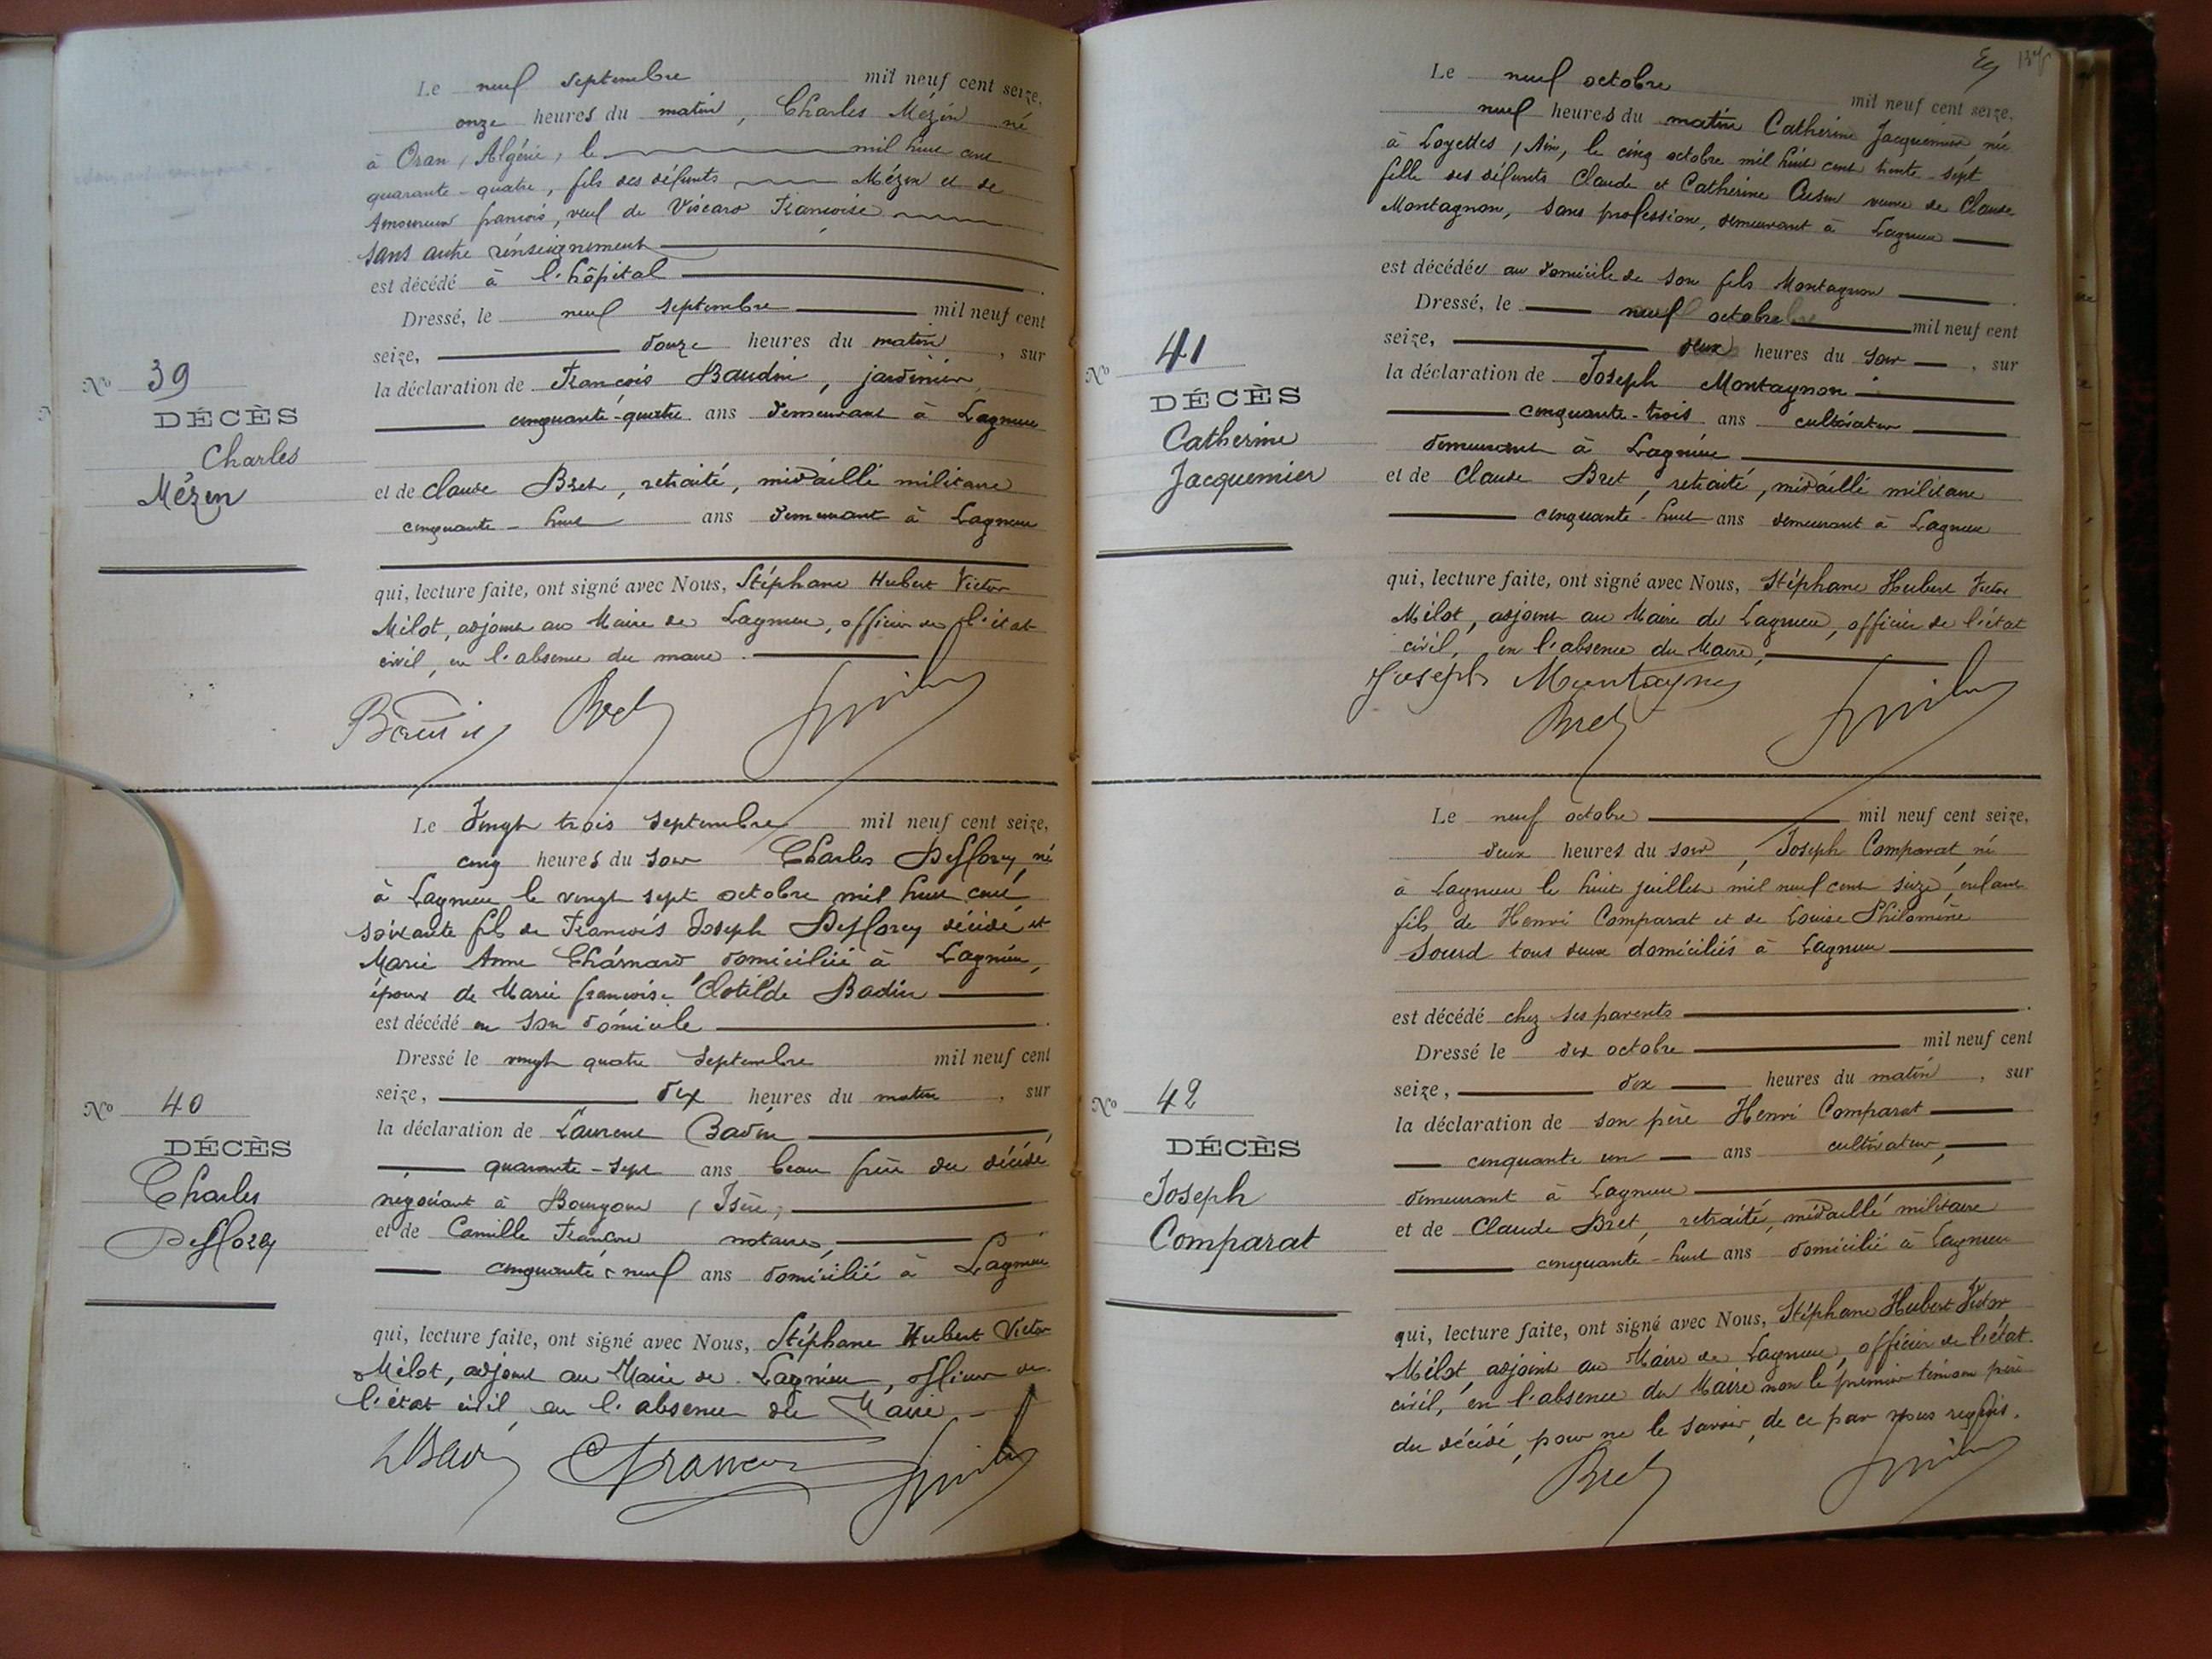 Le neuf septembre mil neuf cent seize,
onze heures du matin, Charles Mézin né
à Oran, Algérie, le mil huit cent
quarante-quatre, fils des défunts Mézin et de
françois, veuf de Viscaro Françoise
sans autre renseignement
est décédé à l'hôpital
Dressé, le neuf septembre mil neuf cent
seize, douze heures du matin, sur
la déclaration de François Baudin, jardinier,
cinquante-quatre ans demeurant à Lagnieu
et de Claude Bret, retraité, médaillé militaire
cinquante-huit ans demeurant à Lagnieu
qui, lecture faite, ont signé avec Nous, Stéphane Hubert Victor
Milot, adjoint au Maire de Lagnieu, officier de l'état
civil, en l'absence du maire.
Baudin Bret
No 39
DÉCÈS
Charles
Mézin
Le Vingt trois septembre mil neuf cent seize,
cinq heures du soir Charles Defforey, né
à Lagnieu le vingt sept octobre mil huit cent
soixante fils de François Joseph Defforey décédé et
Marie Anne Charnard domiciliée à Lagnieu,
époux de Marie françoise Clotilde Badin
est décédé en son domicile
Dressé le vingt quatre septembre mil neuf cent
seize, dix heures du matin, sur
la déclaration de Laurent Badin,
quarante-sept ans beau frère du décédé
négociant à Bourgoin (Isère)
et de Camille Francon notaire,
cinquante neuf ans domicilié à Lagnieu
qui, lecture faite, ont signé avec Nous, Stéphane Hubert Victor
Milot, adjoint au Maire de Lagnieu, officier de
l'état civil en l'absence du Maire
LBadin CFrancon
No 40
DÉCÈS
Charles
Defforey
Le neuf octobre mil neuf cent seize,
neuf heures du matin Catherine Jacquemier née
à Loyettes, Ain, le cinq octobre mil huit cent trente-sept
fille des défunts Claude et Catherine veuve de Claude
Montagnon, sans profession, demeurant à Lagnieu
est décédée au domicile de son fils Montagnon
Dressé, le neuf octobre mil neuf cent
seize, deux heures du soir, sur
la déclaration de Joseph Montagnon
cinquante-trois ans cultivateur
demeurant à Lagnieu
et de Claude Bret, retraité, médaillé militaire
cinquante-huit ans demeurant à Lagnieu
qui, lecture faite, ont signé avec Nous, Stéphane Hubert Victor
Milot, adjoint au Maire de Lagnieu, officier de l'état
civil, en l'absence du Maire,
Joseph Montagnon
Bret
No 41
DÉCÈS
Catherine
Jacquemier
Le neuf octobre mil neuf cent seize,
deux heures du soir, Joseph Comparat, né
à Lagnieu le huit juillet mil neuf cent seize, enfant
fils de Henri Comparat et de Louise Philomène
Sourd tous deux domiciliés à Lagnieu
est décédé chez ses parents
Dressé le dix octobre mil neuf cent
seize, dix heures du matin, sur
la déclaration de son père Henri Comparat
cinquante un ans cultivateur,
demeurant à Lagnieu
et de Claude Bret, retraité, médaillé militaire
cinquante-huit ans domicilié à Lagnieu
qui, lecture faite, ont signé avec Nous, Stéphane Hubert Victor
Milot, adjoint au Maire de Lagnieu, officier de l'état
civil, en l'absence du Maire non le premier témoin père
du décédé, pour ne le savoir, de ce par nous requis.
Bret
No 42
DÉCÈS
Joseph
Comparat